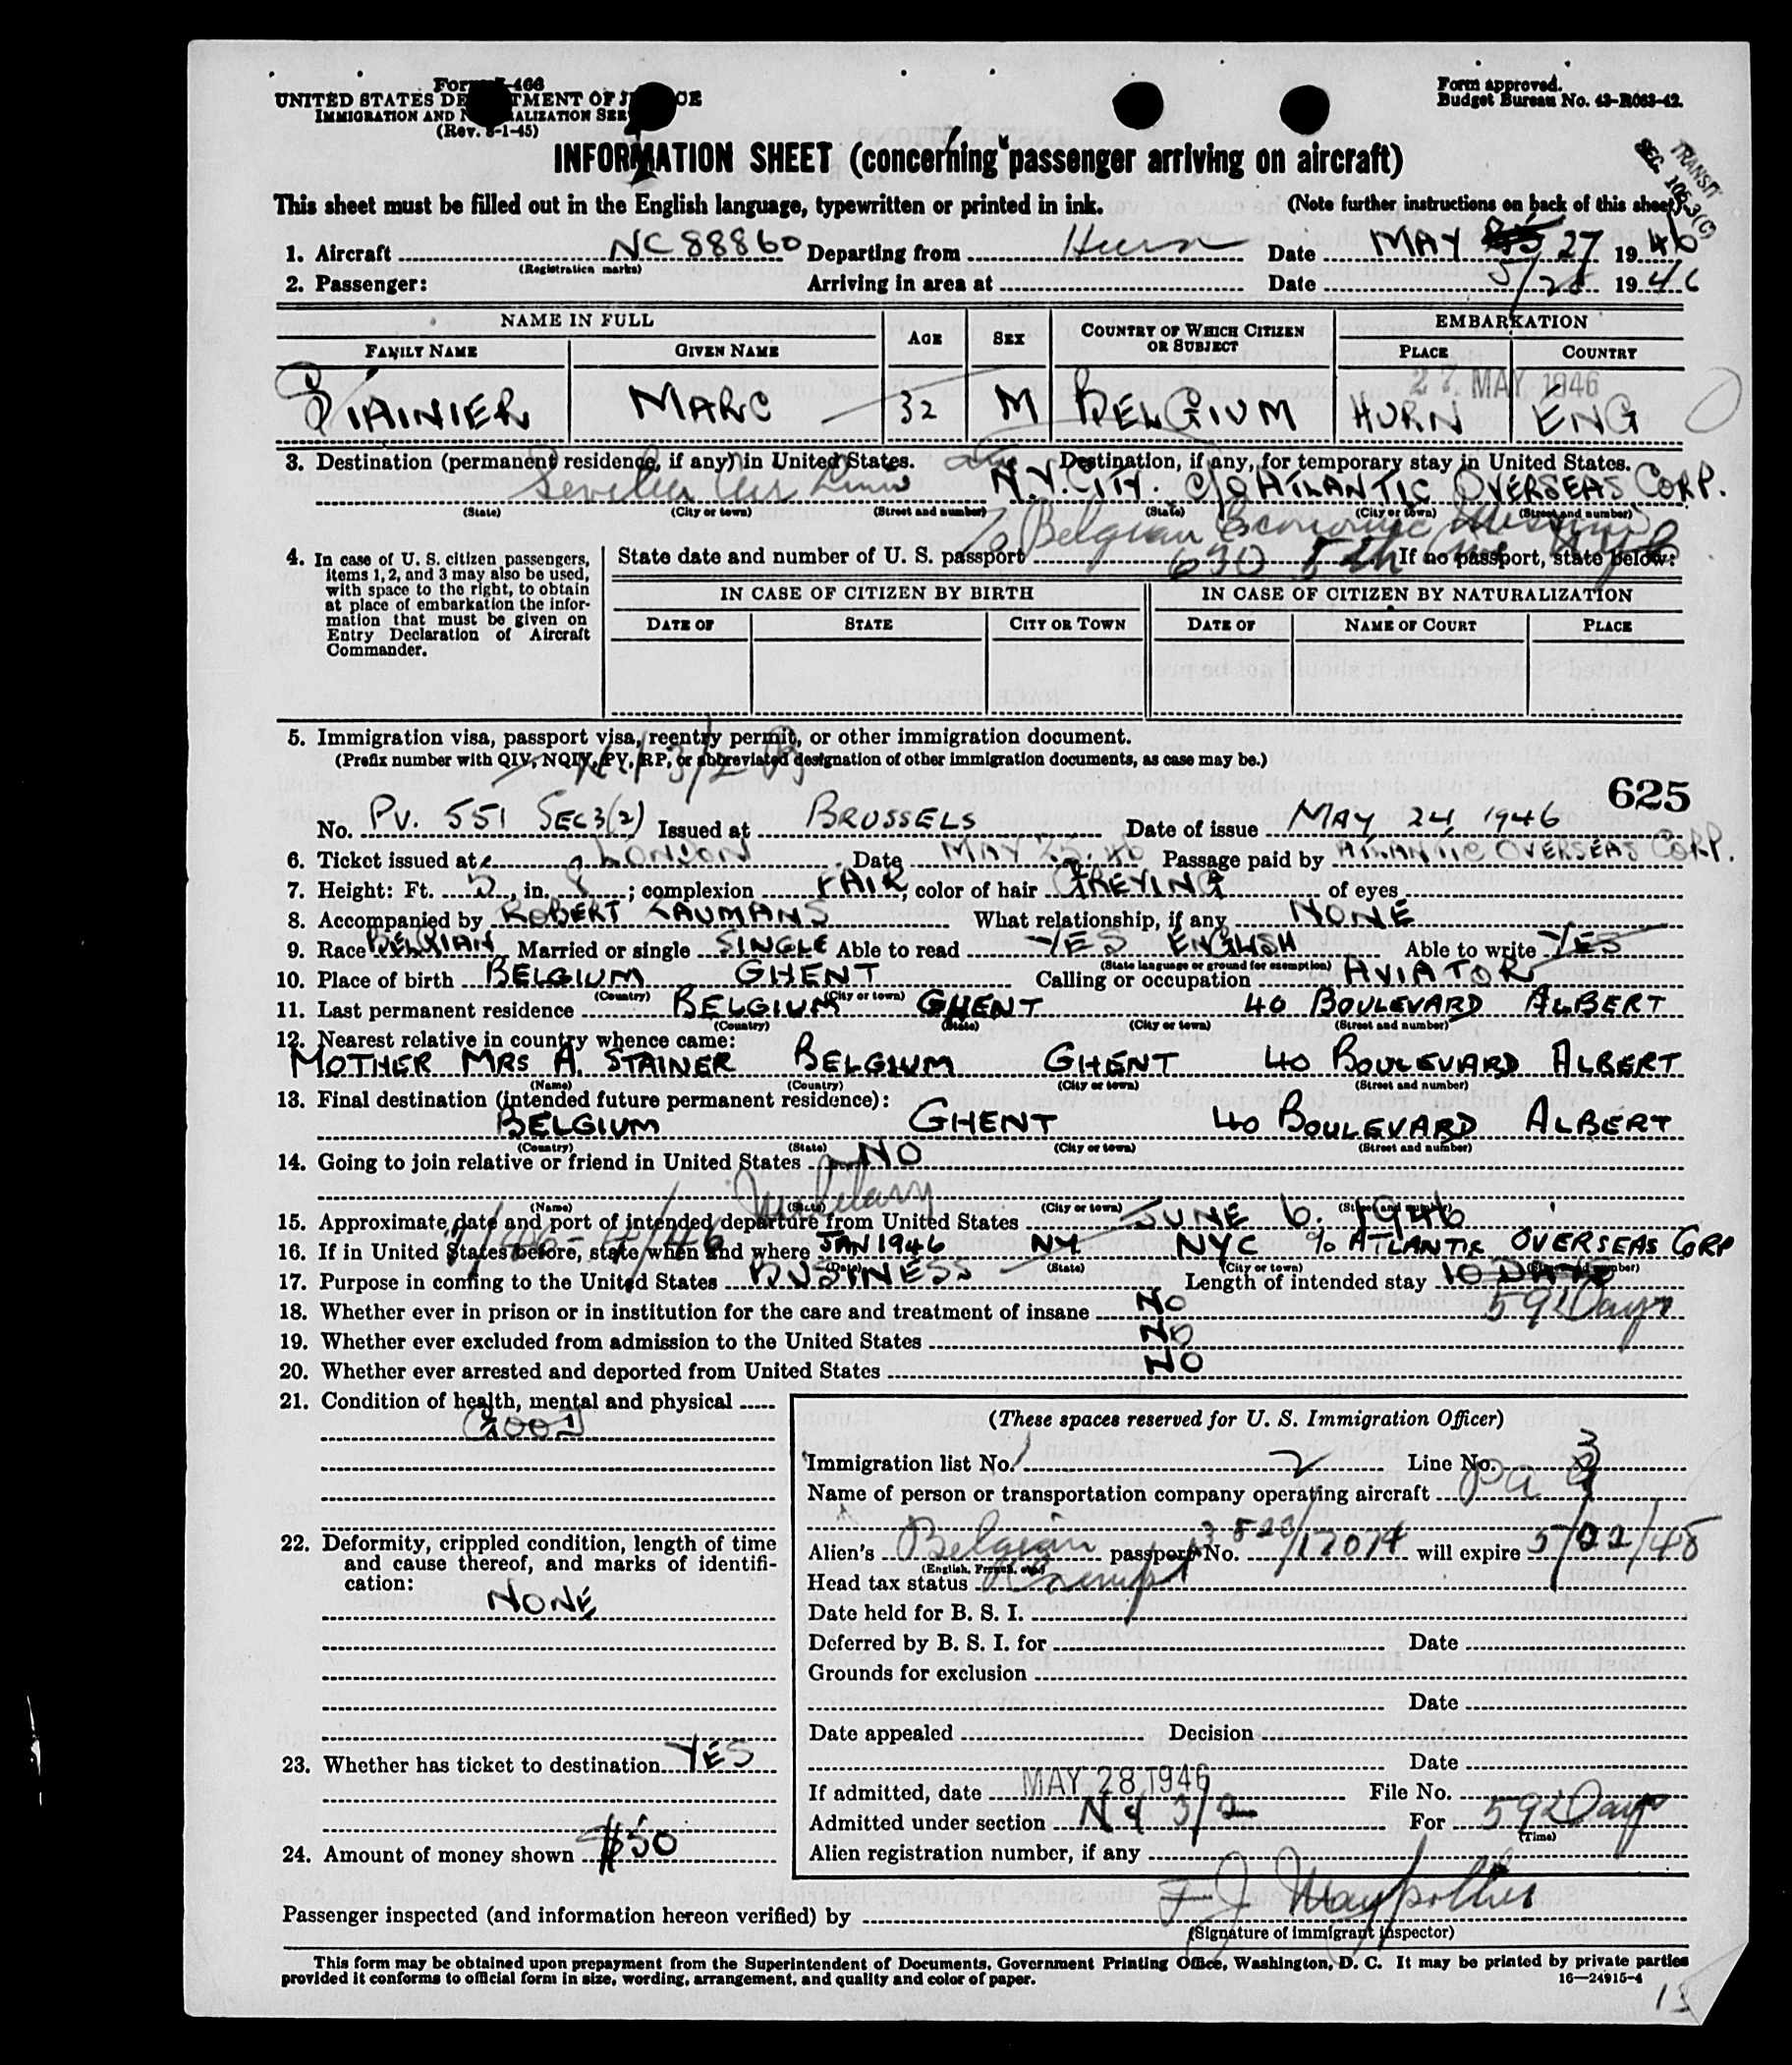 Form I-466
UNITED STATES DEPARTMENT OF JUSTICE
IMMIGRATION AND NATURALIZATION SERVICE
(Rev. 8-1-45)
Form approved.
Budget Bureau No. 43-R063-42.
INFORMATION SHEET (concerning passenger arriving on aircraft)
TRANSIT
SEC. 105.3(C)
This sheet must be filled out in the English language, typewritten or printed in ink. (Note further instructions on back of this sheet)
1. Aircraft NC 88860 Departing from Hurn Date MAY 27 1946
(Registration marks)
2. Passenger: Arriving in area at Date 5/28 1946
NAME IN FULL AGE SEX COUNTRY OF WHICH CITIZEN OR SUBJECT EMBARKATION
FAMILY NAME GIVEN NAME PLACE COUNTRY
27 MAY 1946
STAINIER MARC 32 M BELGIUM HURN ENG
3. Destination (permanent residence, if any) in United States. Destination, if any, for temporary stay in United States.
Air N.Y. CITY. C/O ATLANTIC OVERSEAS CORP.
(State) (City or town) (Street and number) (State) (City or town) (Street and number)
% Belgian Economic Mission
630 5th Ave NYC
4. In case of U. S. citizen passengers, items 1, 2, and 3 may also be used, with space to the right, to obtain at place of embarkation the information that must be given on Entry Declaration of Aircraft Commander.
State date and number of U. S. passport If no passport, state below:
IN CASE OF CITIZEN BY BIRTH IN CASE OF CITIZEN BY NATURALIZATION
DATE OF STATE CITY OR TOWN DATE OF NAME OF COURT PLACE
5. Immigration visa, passport visa, reentry permit, or other immigration document.
(Prefix number with QIV, NQIV, PV, RP, or abbreviated designation of other immigration documents, as case may be.)
625
No. PV. 551 SEC 3(2) Issued at BRUSSELS Date of issue MAY 24 1946
6. Ticket issued at LONDON Date MAY 25. 46 Passage paid by ATLANTIC OVERSEAS CORP.
7. Height: Ft. 5, in. 8; complexion FAIR, color of hair GREYING of eyes
8. Accompanied by ROBERT LAUMANS What relationship, if any NONE
9. Race BELGIAN Married or single SINGLE Able to read YES ENGLISH Able to write YES
(State language or ground for exemption)
10. Place of birth BELGIUM GHENT Calling or occupation AVIATOR
(Country) (City or town)
11. Last permanent residence BELGIUM GHENT 40 BOULEVARD ALBERT
(Country) (State) (City or town) (Street and number)
12. Nearest relative in country whence came:
MOTHER MRS A. STAINER BELGIUM GHENT 40 BOULEVARD ALBERT
(Name) (Country) (City or town) (Street and number)
13. Final destination (intended future permanent residence):
BELGIUM GHENT 40 BOULEVARD ALBERT
(Country) (State) (City or town) (Street and number)
14. Going to join relative or friend in United States NO
(Name) (State) (City or town) (Street and number)
15. Approximate date and port of intended departure from United States JUNE 6. 1946
16. If in United States before, state when and where JAN 1946 NY NYC % ATLANTIC OVERSEAS CORP
(Date) (State) (City or town) (Street and number)
17. Purpose in coming to the United States BUSINESS Length of intended stay 10 DAYS
59 2 Days
18. Whether ever in prison or in institution for the care and treatment of insane NO
19. Whether ever excluded from admission to the United States NO
20. Whether ever arrested and deported from United States NO
21. Condition of health, mental and physical
GOOD
22. Deformity, crippled condition, length of time and cause thereof, and marks of identification:
NONE
23. Whether has ticket to destination YES
24. Amount of money shown $50
(These spaces reserved for U. S. Immigration Officer)
Immigration list No. 2 Line No. 3
Name of person or transportation company operating aircraft
Alien's Belgian passport No. 3823/17074 will expire 5/22/48
(English, French, etc.)
Head tax status Exempt
Date held for B. S. I.
Deferred by B. S. I. for Date
Grounds for exclusion
Date
Date appealed Decision
Date
If admitted, date MAY 28 1946 File No.
Admitted under section N4 3/2 For 59 2 Days
(Time)
Alien registration number, if any
Passenger inspected (and information hereon verified) by F J Maypother
(Signature of immigrant inspector)
This form may be obtained upon prepayment from the Superintendent of Documents, Government Printing Office, Washington, D. C. It may be printed by private parties
provided it conforms to official form in size, wording, arrangement, and quality and color of paper. 16—24915-4